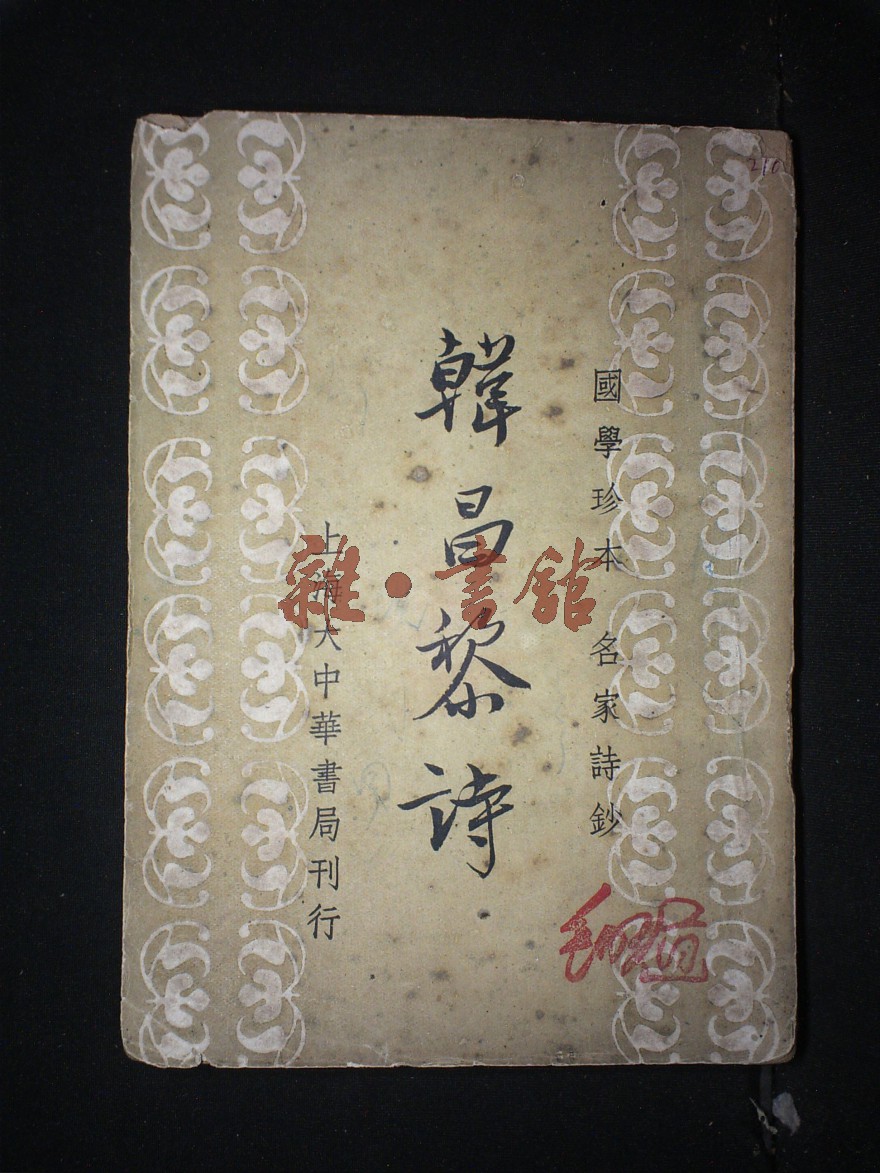 210
國學珍本 名家詩鈔
韓昌黎詩
上海大中華書局刊行
雜·書館